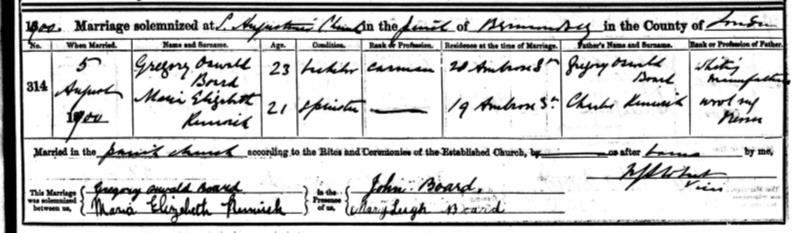 1900. Marriage solemnized at St Augustines Church in the parish of Bermondsey in the County of London
No. When Married. Name and Surname. Age. Condition. Rank or Profession. Residence at the time of Marriage. Father's Name and Surname. Rank or Profession of Father.
314 5 August 1900
Gregory Oswald Board 23 bachelor carman 20 Ambrose St Gregory Oswald Board manufacturer
Maria Elizabeth Renwick 21 spinster 19 Ambrose St Charles Renwick wool
Married in the parish church according to the Rites and Ceremonies of the Established Church, by or after banns by me,
Vicar
This Marriage was solemnized between us, Gregory oswald Board Maria Elizabeth Renwick In the Presence of us, John Board. Mary Leigh Board